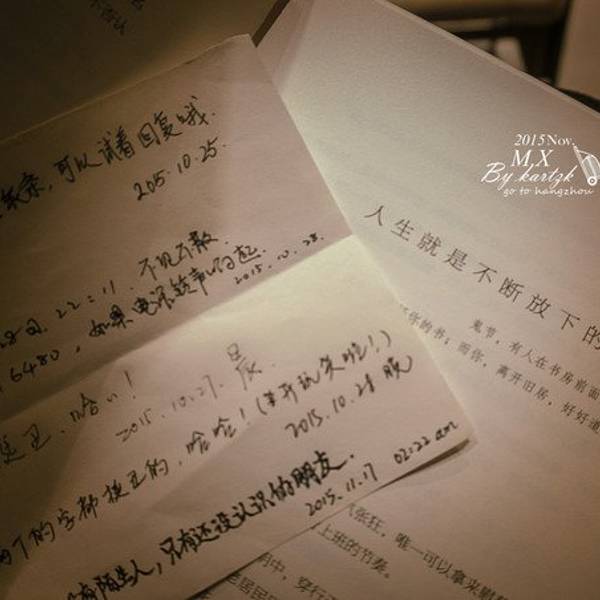 不否认
纸条,可以试着回复哦.
2015.10.25.
22:11.不见不散.
6480,如果电话铃声响起.
2015.10.28.
哈哈!
2015.10.27.晨.
的字都挺丑的,哈哈!(羊开玩笑啦!)
2015.10.28 晚
有陌生人,只有还没认识的朋友.
2015.11.17 02:22am
2015Nov.
M,X
By kartzk
go to hangzhou
人生就是不断放下的
鬼节,有人在书房前面
你的书;而你,离开旧居,好好道
张狂,唯一可以拿来慰
上班的节奏。
中,穿行
老居民